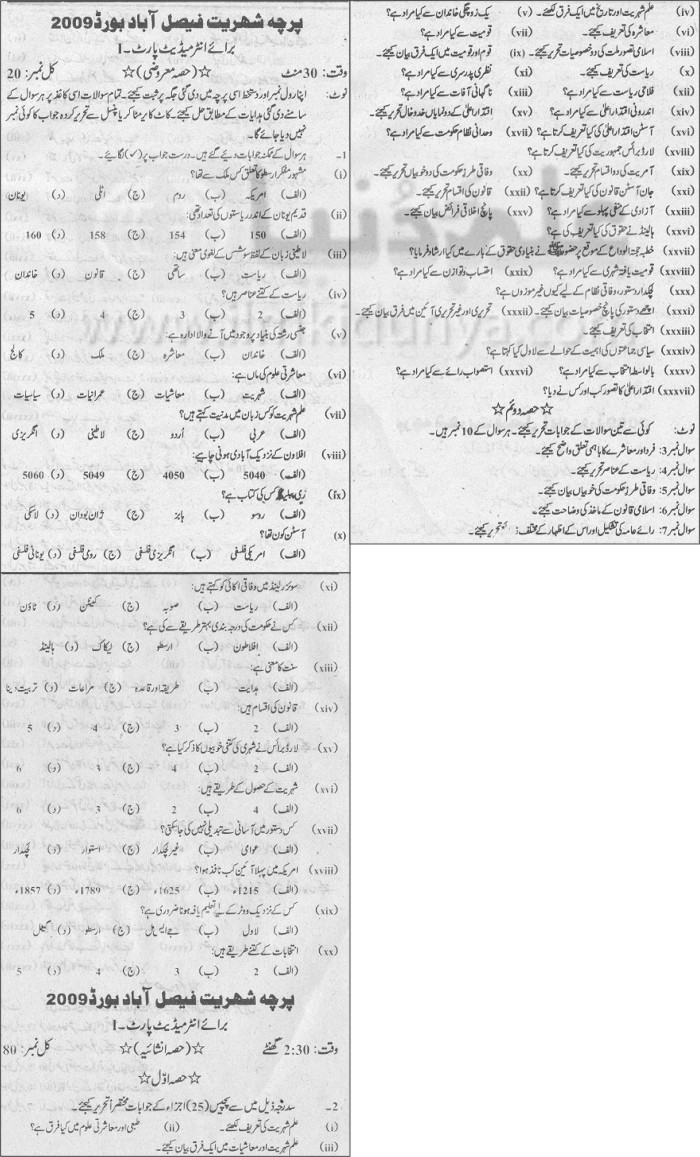 پرچہ شہریت فیصل آباد بورڈ 2009
برائے انٹرمیڈیٹ پارٹ ۔I
وقت: 30 منٹ ☆(حصہ معروضی)☆ کل نمبر: 20
نوٹ: اپنا رول نمبر اور دستخط اسی پرچہ میں دی گئی جگہ پر ثبت کیجئے۔ تمام سوالات اسی کاغذ پر ہر سوال کے
سامنے دی گئی ہدایات کے مطابق حل کیجئے۔ کاٹ کر یا مٹا کر یا پنسل سے تحریر کردہ جواب کا کوئی نمبر
نہیں دیا جائے گا۔
1۔ ہر سوال کے ممکنہ جوابات دیے گئے ہیں۔ درست جواب پر (✓) لگائیے۔
(i) مشہور مفکر ارسطو کا تعلق کس ملک سے تھا؟
(الف) امریکہ (ب) روم (ج) اٹلی (د) یونان
(ii) قدیم یونان کے اندر ریاستوں کی تعداد تھی:
(الف) 150 (ب) 154 (ج) 158 (د) 160
(iii) لاطینی زبان کے لفظ سوشس کے لغوی معنی ہیں:
(الف) ریاست (ب) ساتھی (ج) قانون (د) خاندان
(iv) ریاست کے کتنے عناصر ہیں؟
(الف) 2 (ب) 3 (ج) 4 (د) 5
(v) جنسی رشتہ کی بنیاد پر وجود میں آنے والا ادارہ ہے:
(الف) خاندان (ب) معاشرہ (ج) ملک (د) کالج
(vi) معاشرتی علوم کی ماں ہے:
(الف) شہریت (ب) معاشیات (ج) عمرانیات (د) سیاسیات
(vii) علم شہریت کو کس زبان میں مدنیت کہتے ہیں؟
(الف) عربی (ب) اُردو (ج) لاطینی (د) انگریزی
(viii) افلاطون کے نزدیک آبادی ہونی چاہیے:
(الف) 5040 (ب) 4050 (ج) 5049 (د) 5060
(ix) ری پبلک کس کی کتاب ہے؟
(الف) روسو (ب) ہابز (ج) ژاں بوداں (د) لاسکی
(x) آسٹن کون تھا؟
(الف) امریکی فلسفی (ب) انگریزی فلسفی (ج) رومی فلسفی (د) یونانی فلسفی
(xi) سوئٹزرلینڈ میں وفاقی اکائی کو کہتے ہیں:
(الف) ریاست (ب) صوبہ (ج) کینٹن (د) ٹاؤن
(xii) کس نے حکومت کی درجہ بندی بہتر طریقے سے کی ہے؟
(الف) افلاطون (ب) ارسطو (ج) لیکاک (د) ہالینڈ
(xiii) سنت کا معنی ہے:
(الف) ہدایت (ب) طریقہ اور قاعدہ (ج) مراعات (د) تربیت دینا
(xiv) قانون کی اقسام ہیں:
(الف) 2 (ب) 3 (ج) 4 (د) 5
(xv) لارڈ برائس نے شہری کی کتنی خوبیوں کا ذکر کیا ہے؟
(الف) 2 (ب) 4 (ج) 3 (د) 6
(xvi) شہریت کے حصول کے طریقے ہیں:
(الف) 4 (ب) 2 (ج) 3 (د) 6
(xvii) کس دستور میں آسانی سے تبدیلی نہیں کی جا سکتی؟
(الف) عوامی (ب) غیر لچکدار (ج) استوار (د) لچکدار
(xviii) امریکہ میں پہلا آئین کب نافذ ہوا؟
(الف) 1215ء (ب) 1625ء (ج) 1789ء (د) 1857ء
(xix) کس کے نزدیک ووٹر کے لیے تعلیم یافتہ ہونا ضروری ہے؟
(الف) لاول (ب) جے ایس مل (ج) ارسطو (د) گیٹل
(xx) انتخابات کے کتنے طریقے ہیں:
(الف) 2 (ب) 3 (ج) 4 (د) 5
پرچہ شہریت فیصل آباد بورڈ 2009
برائے انٹرمیڈیٹ پارٹ ۔I
وقت: 2:30 گھنٹے ☆(حصہ انشائیہ)☆ کل نمبر: 80
☆حصہ اوّل☆
2۔ مندرجہ ذیل میں سے پچیس (25) اجزاء کے جوابات مختصراً تحریر کیجئے۔
(i) علم شہریت کی تعریف لکھئے۔ (ii) طبعی اور معاشرتی علوم میں کیا فرق ہے؟
(iii) علم شہریت اور معاشیات میں ایک فرق بیان کیجئے۔
(iv) علم شہریت اور تاریخ میں ایک فرق لکھئے۔ (v) یک زوجگی خاندان سے کیا مراد ہے؟
(vi) معاشرہ کی تعریف کیجئے۔ (vii) قومیت سے کیا مراد ہے؟
(viii) اسلامی تصور ملت کی دو خصوصیات تحریر کیجئے۔ (ix) قوم اور قومیت میں ایک فرق بیان کیجئے۔
(x) ریاست کی تعریف کیجئے۔ (xi) نظریۂ پدرسری سے کیا مراد ہے؟
(xii) فلاحی ریاست سے کیا مراد ہے؟ (xiii) ناگہانی آفات سے کیا مراد ہے؟
(xiv) اندرونی اقتدار اعلیٰ سے کیا مراد ہے؟ (xv) اقتدار اعلیٰ کے دو نمایاں خدوخال تحریر کیجئے۔
(xvi) آسٹن اقتدار اعلیٰ کی کیا تعریف کرتا ہے؟ (xvii) وحدانی نظام حکومت سے کیا مراد ہے؟
(xviii) لارڈ برائس جمہوریت کی کیا تعریف کرتا ہے؟
(xix) آمریت کی دو اقسام لکھئے۔ (xx) وفاقی طرز حکومت کی دو خوبیاں تحریر کیجئے۔
(xxi) جان آسٹن قانون کی کیا تعریف کرتا ہے؟ (xxii) قانون کی اقسام تحریر کیجئے۔
(xxiii) آزادی کے منفی پہلو سے کیا مراد ہے؟ (xxv) پانچ اخلاقی فرائض بیان کیجئے۔
(xxvi) ہالینڈ نے حقوق کی کیا تعریف کی ہے؟
(xxvii) خطبہ حجۃ الوداع کے موقع پر حضور ﷺ نے بنیادی حقوق کے بارے میں کیا ارشاد فرمایا؟
(xxviii) قومیت یافتہ شہری سے کیا مراد ہے؟ (xxix) احتساب و توازن سے کیا مراد ہے؟
(xxx) لچکدار دستور، وفاقی نظام کے لیے کیوں غیر موزوں ہے؟
(xxxi) اچھے دستور کی پانچ خصوصیات بیان کیجئے۔ (xxxii) تحریری اور غیر تحریری آئین میں فرق بیان کیجئے۔
(xxxiii) انتخاب کی تعریف کیجئے۔
(xxxiv) سیاسی جماعتوں کی اہمیت کے حوالے سے لاول کیا کہتا ہے؟
(xxxv) بالواسطہ انتخاب سے کیا مراد ہے؟ (xxxvi) استصواب رائے سے کیا مراد ہے؟
(xxxvii) اقتدار اعلیٰ کا تصور کب اور کس نے دیا؟
☆حصہ دوئم☆
نوٹ: کوئی سے تین سوالات کے جوابات تحریر کیجئے۔ ہر سوال کے 10 نمبر ہیں۔
سوال نمبر 3: فرد اور معاشرے کا باہمی تعلق واضح کیجئے۔
سوال نمبر 4: ریاست کے عناصر تحریر کیجئے۔
سوال نمبر 5: وفاقی طرز حکومت کی خوبیاں بیان کیجئے۔
سوال نمبر 6: اسلامی قانون کے ماخذ کی وضاحت کیجئے۔
سوال نمبر 7: رائے عامہ کی تشکیل اور اس کے اظہار کے مختلف تحریر کیجئے۔